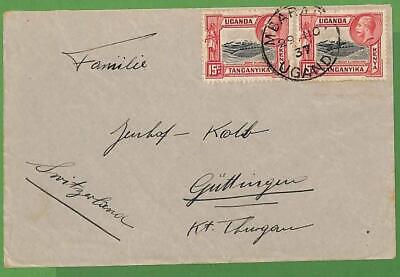 UGANDA
KENYA
TANGANYIKA
15c
UGANDA
KENYA
TANGANYIKA
MBARARA
37
UGANDA
Familie
Kolb
Güttingen
Kt. Thurgau
Switzerland